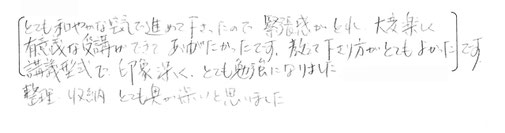 とても和やかな空気で進めて下さったので 緊張感がとれ、大変楽しく
有意義な受講ができて ありがたかったです。教えて下さり方がとてもよかったです
講義型式で 印象深く、とても勉強になりました
整理・収納 とても奥が深いと思いました